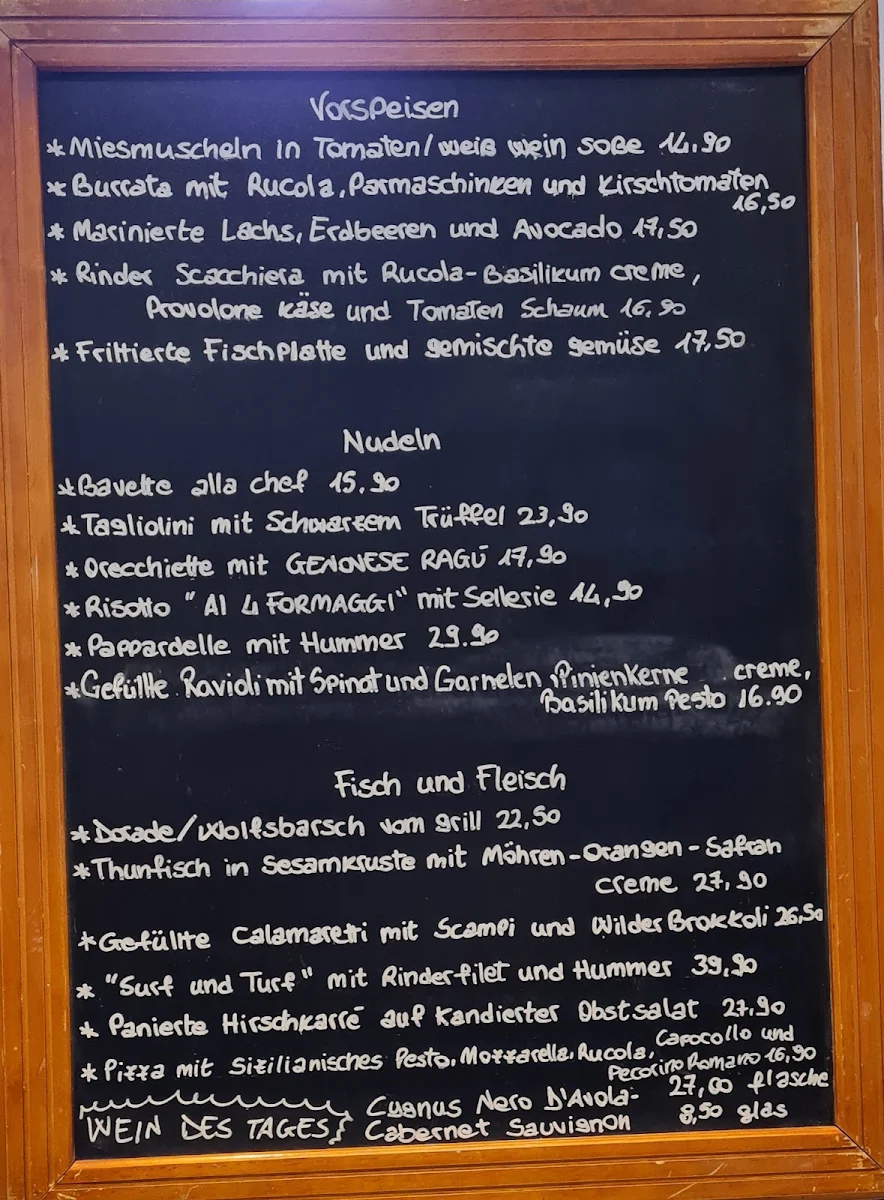 Vorspeisen
* Miesmuscheln in Tomaten/weiß wein soße 14.90
* Burrata mit Rucola, Parmaschinken und Kirschtomaten
16,50
* Marinierte Lachs, Erdbeeren und Avocado 17,50
* Rinder Scacchiera mit Rucola-Basilikum creme,
Provolone käse und Tomaten Schaum 16,90
* Friltierte Fischplatte und gemischte gemüse 17,50
Nudeln
* Bavette alla chef 15,90
* Tagliolini mit Schwarzem Trüffel 23,90
* Orecchiette mit GENOVESE RAGÚ 17,90
* Risotto "AI 4 FORMAGGI" mit Sellerie 14,90
* Pappardelle mit Hummer 29.90
* Gefüllte Ravioli mit Spinat und Garnelen, Pinienkerne creme,
Basilikum Pesto 16.90
Fisch und Fleisch
* Dorade/Wolfsbarsch vom grill 22,50
* Thunfisch in Sesamkruste mit Möhren-Orangen-Safran
creme 27,90
* Gefüllte Calamaretti mit Scampi und Wilder Brokkoli 26,50
* "Surf und Turf" mit Rinderfilet und Hummer 39,90
* Panierte Hirschkarré auf Kandierter Obstsalat 27,90
* Pizza mit Sizilianisches Pesto, Mozzarella, Rucola, Capocollo und
Pecorino Romano 16,90
WEIN DES TAGES Cygnus Nero D'Avola- 27,00 flasche
Cabernet Sauvignon 8,50 glas